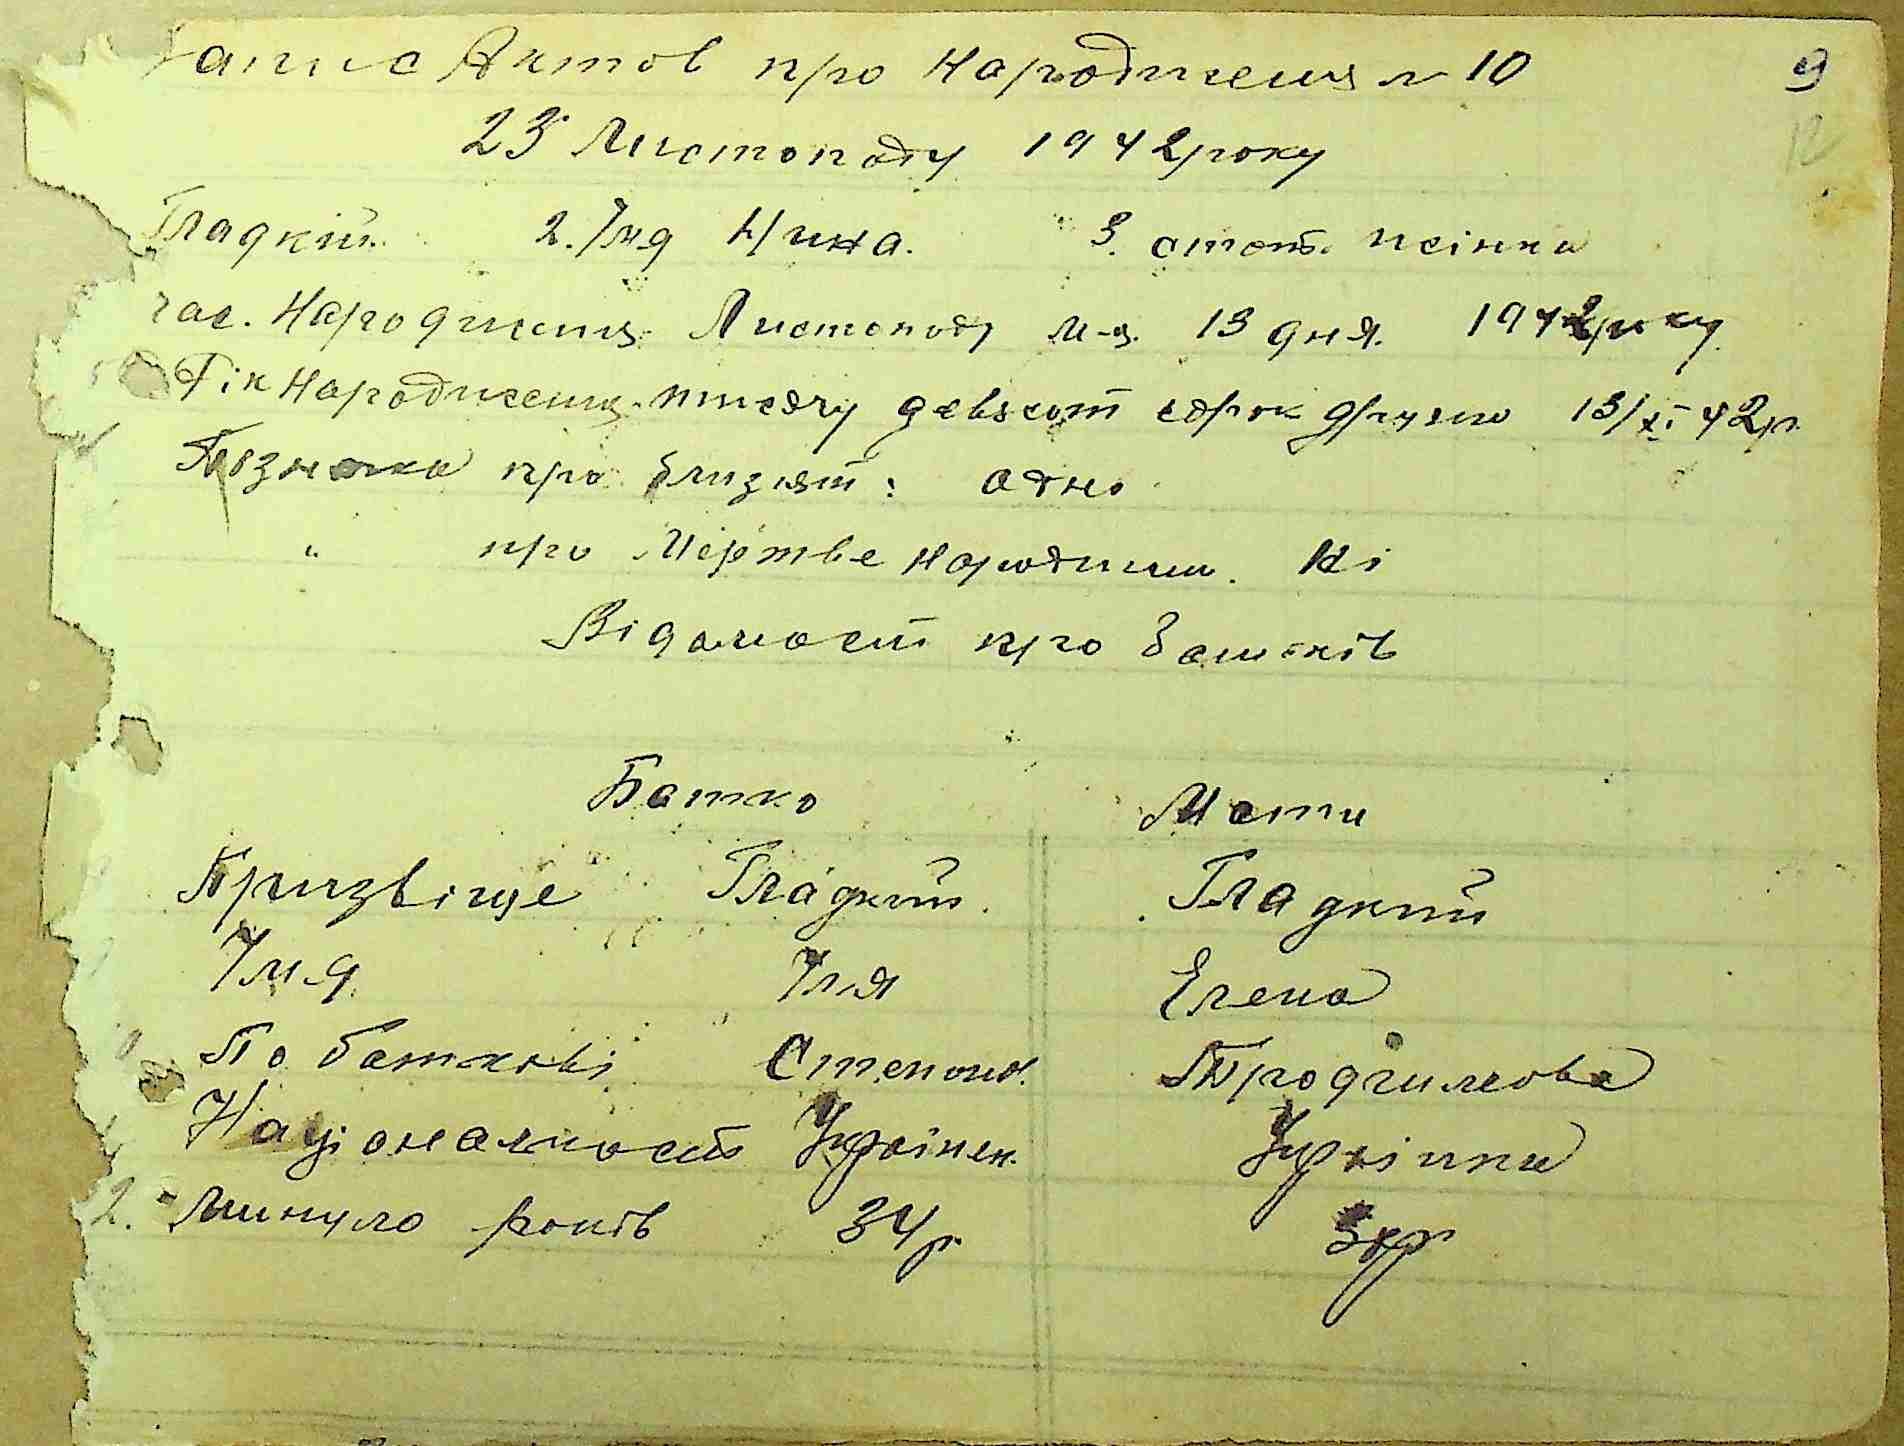 Запис Актов про Народження № 10
9
12
23 Листопаду 1942 року
Гладкій. 2. Імя Нина. 3. стать жінки
час. Народження Листопаду м-я. 13 дня. 1942 року
Рік Народження тисячу девьсот сорок другого 13/XI 42 р.
Познака про близят: одно
" про Мертве народжин. Ні
Відомости про батьків
Батко Мати
Призвіще Гладкий. Гладкий
Імя Ілія Елена
По баткові Степанов. Трофимова
Національность Українец. Українка
2. Минуло років 34 р.